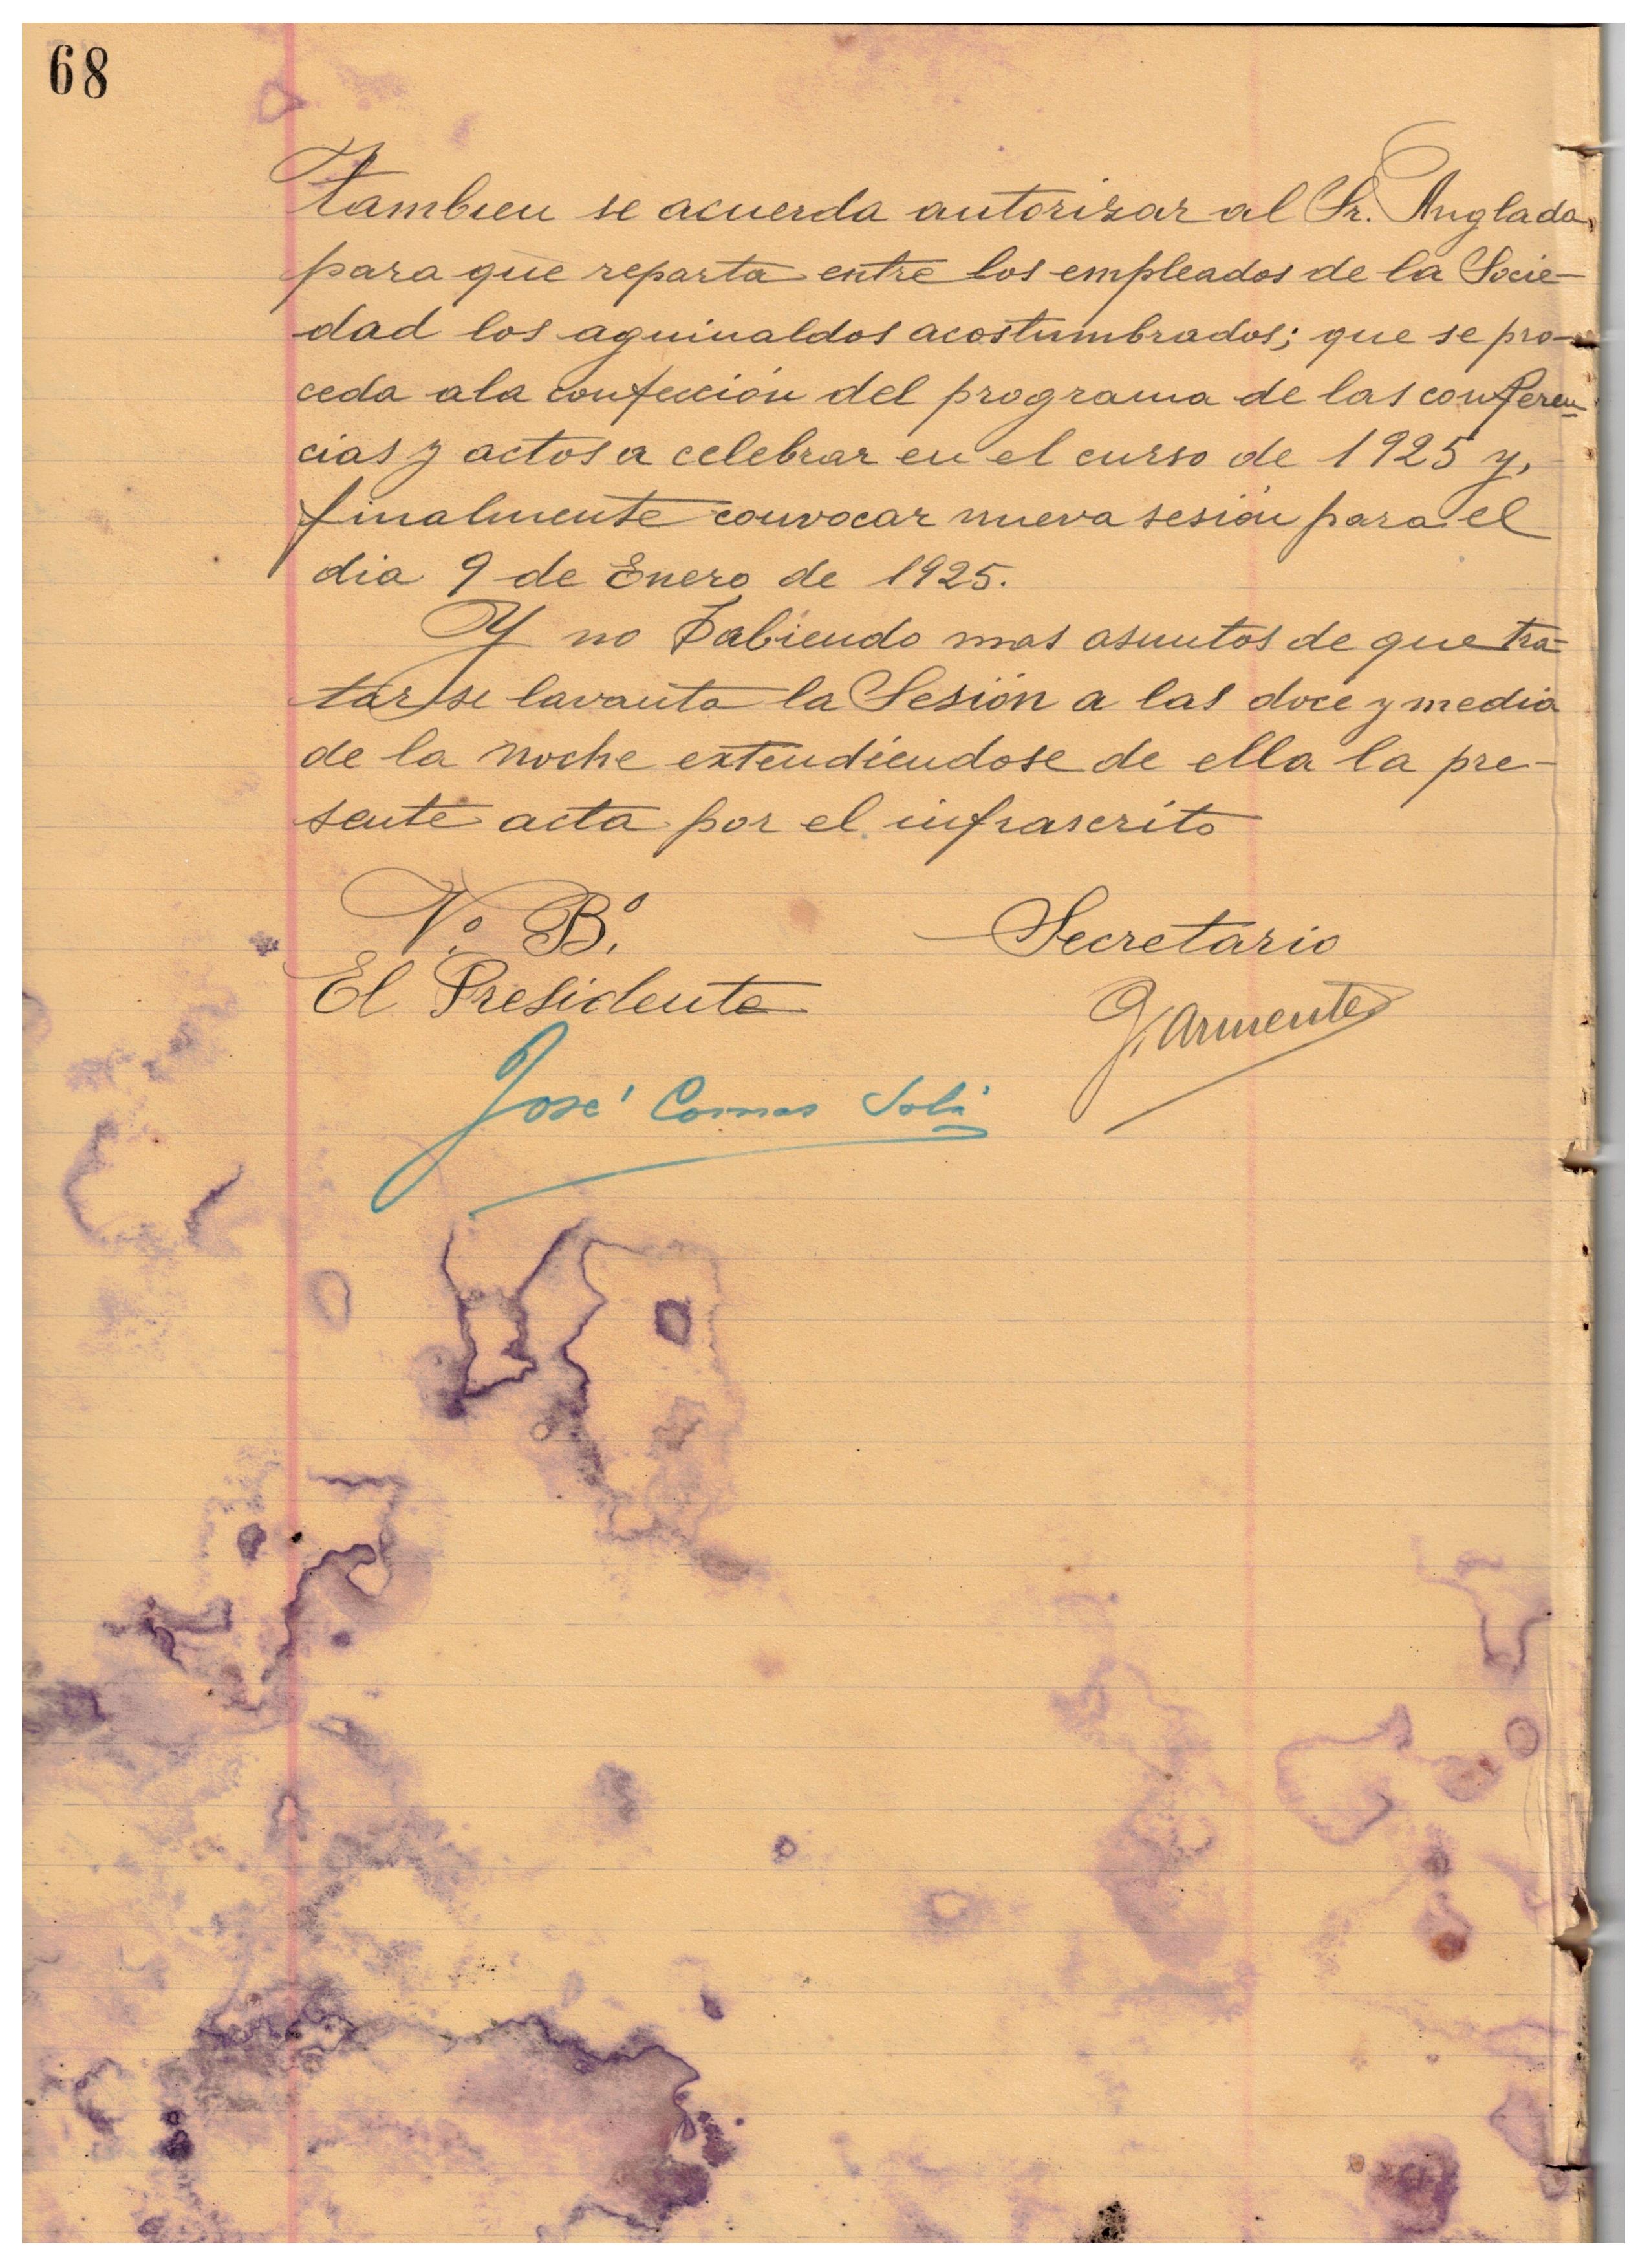 68
Tambien se acuerda autorizar al Sr. Anglada,
para que reparta entre los empleados de la Socie-
dad los aguinaldos acostumbrados; que se pro-
ceda a la confección del programa de las conferen-
cias y actos a celebrar en el curso de 1925 y,
finalmente convocar nueva sesión para el
dia 9 de Enero de 1925.
Y no habiendo mas asuntos de que tra-
tar se lavanta la Sesión a las doce y media
de la noche extendiéndose de ella la pre-
sente acta por el infrascrito
V.º B.º Secretario
El Presidente
J. Armenter
José Comas Solá